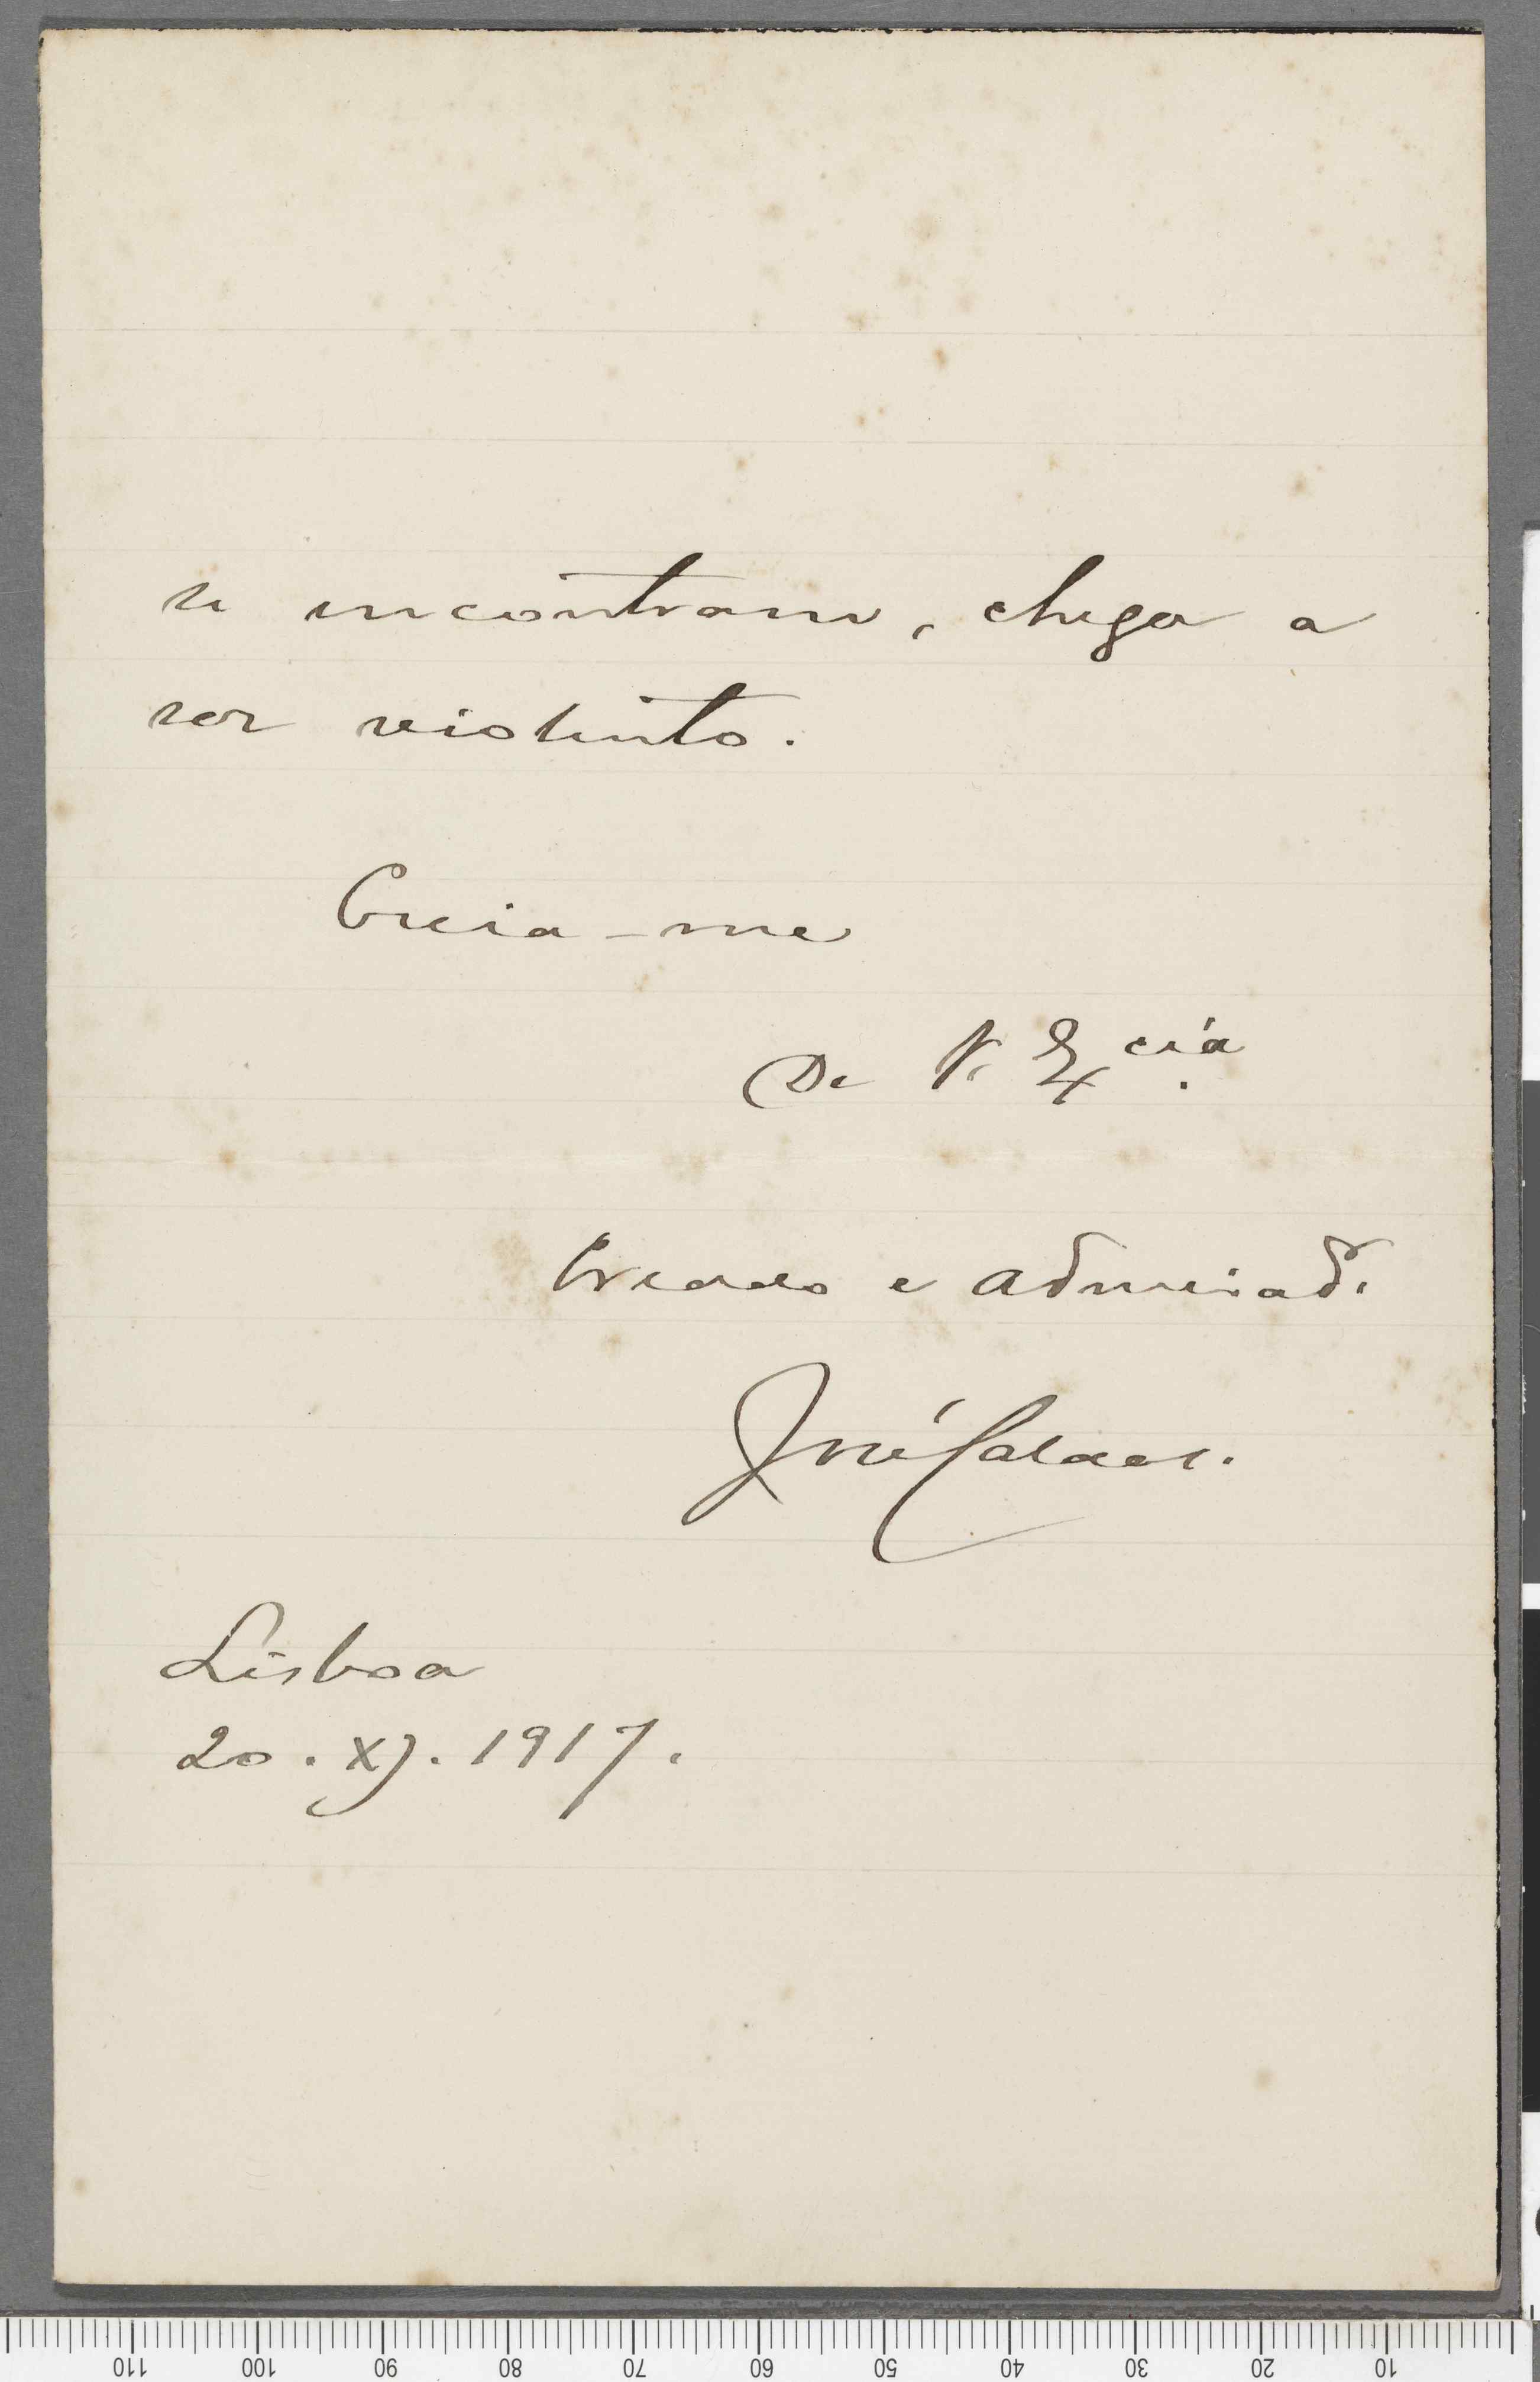 se encontram, chega a
ser violento.
Creia-me
De V. Ex.cia
Creado e admirad.
José Caldas.
Lisboa
20. XJ. 1917.
110 100 90 80 70 60 50 40 30 20 10